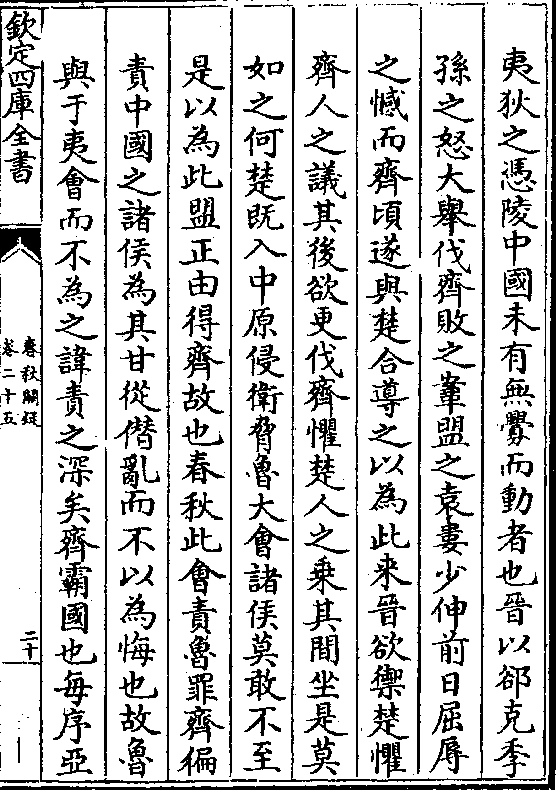 夷狄之憑陵中國未有無釁而動者也晉以郤克季
孫之怒大舉伐齊敗之鞌盟之袁婁少伸前日屈辱
之憾而齊頃遂與楚合導之以為此来晉欲禦楚懼
齊人之議其後欲更伐齊懼楚人之乗其間坐是莫
如之何楚既入中原侵衛脅魯大會諸侯莫敢不至
是以為此盟正由得齊故也春秋此會責魯罪齊徧
責中國之諸侯為其甘從僭亂而不以為悔也故魯
與于夷會而不為之諱責之深矣齊霸國也每序亞
欽定四庫全書
春秋闕疑
卷二十五
二十